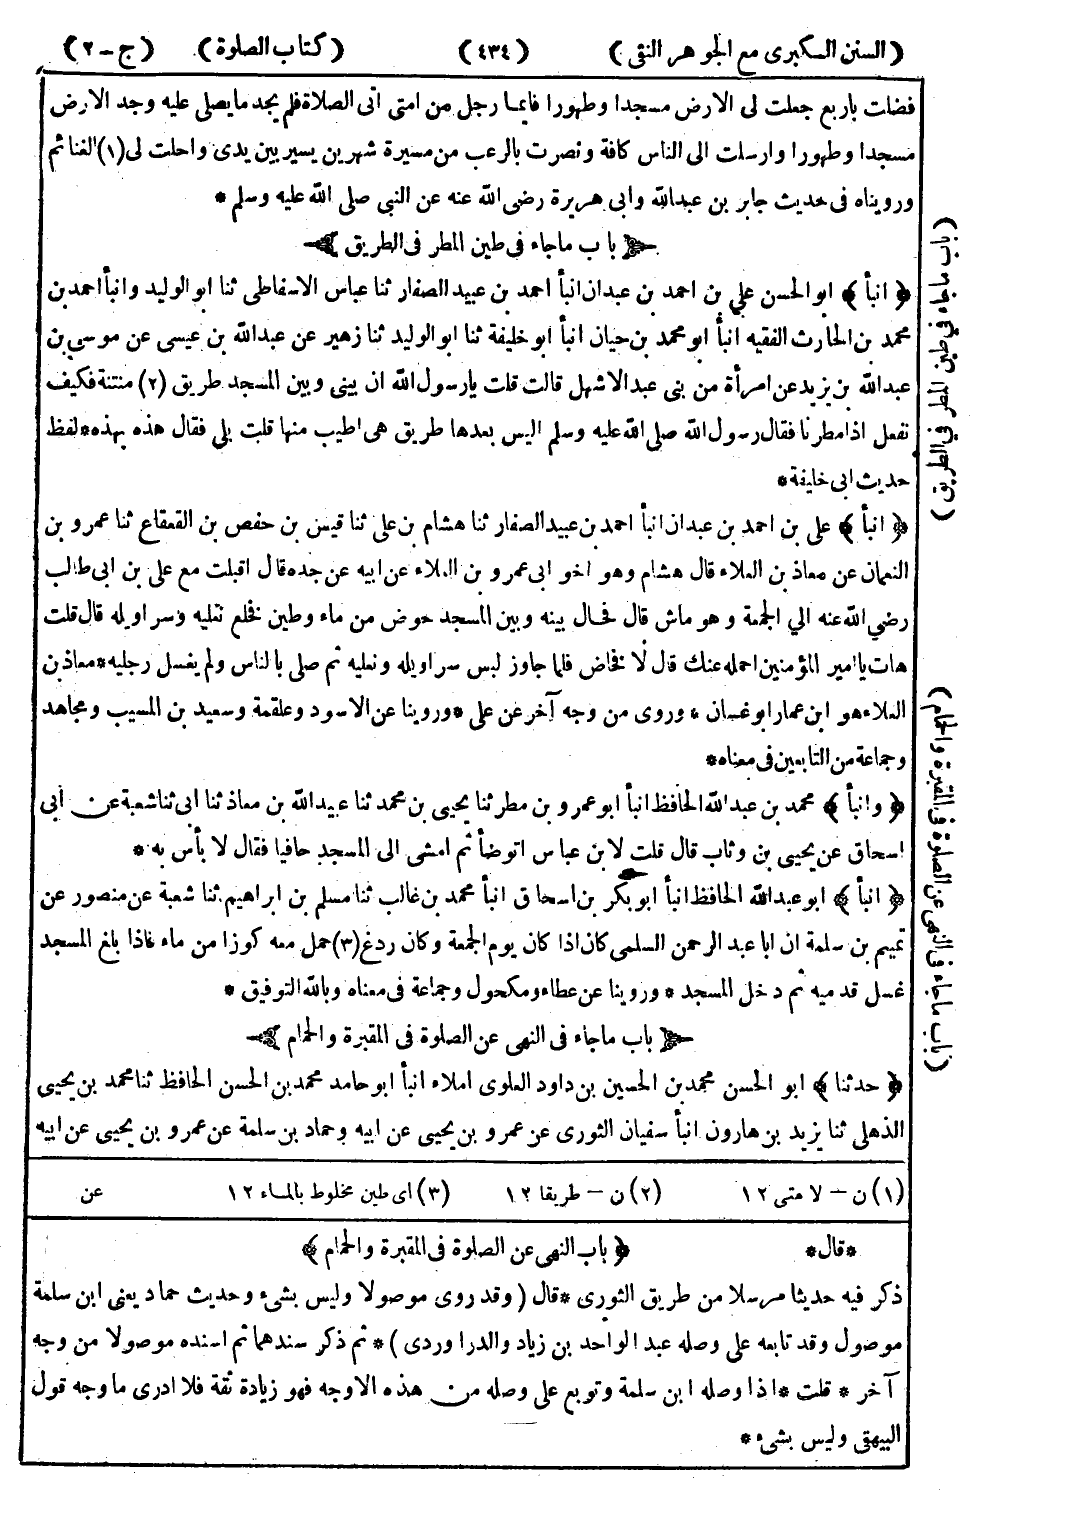 (السنن الكبرى مع الجوهر النقي) (٤٣٤) (كتاب الصلوة) (ج-٢)
فضلت باربع جعلت لى الارض مسجدا وطهورا فايما رجل من امتى اتى الصلاة فلم يجد ما يصلى عليه وجد الارض
مسجدا وطهورا وارسلت الى الناس كافة ونصرت بالرعب من مسيرة شهرين يسير بين يدى واحلت لى (١) الغنائم
ورويناه فى حديث جابر بن عبدالله وابى هريرة رضى الله عنه عن النبى صلى الله عليه وسلم *
باب ماجاء فى طين المطر فى الطريق
﴿ انبأ ﴾ ابو الحسن علي بن احمد بن عبدان انبأ احمد بن عبيد الصفار ثنا عباس الاسفاطى ثنا ابو الوليد وانبأ احمد بن
محمد بن الحارث الفقيه انبأ ابو محمد بن حيان انبأ ابو خليفة ثنا ابو الوليد ثنا زهير عن عبدالله بن عيسى عن موسى بن
عبدالله بن يزيد عن امرأة من بنى عبد الاشهل قالت قلت يارسول الله ان بينى وبين المسجد طريق (٢) منتنة فكيف
نفعل اذا مطرنا فقال رسول الله صلى الله عليه وسلم اليس بعدها طريق هى اطيب منها قلت بلى فقال هذه بهذه * لفظ
حديث ابى خليفة *
﴿ انبأ ﴾ على بن احمد بن عبدان انبأ احمد بن عبيد الصفار ثنا هشام بن على ثنا قيس بن حفص بن القعقاع ثنا عمرو بن
النعمان عن معاذ بن العلاء قال هشام وهو اخو ابى عمرو بن العلاء عن ابيه عن جده قال اقبلت مع على بن ابى طالب
رضي الله عنه الي الجمعة وهو ماش قال فحال بينه وبين المسجد حوض من ماء وطين فخلع نعليه وسراويله قال قلت
هات يا امير المؤمنين احمله عنك قال لا فخاض فلما جاوز لبس سراويله ونعليه ثم صلى بالناس ولم يغسل رجليه * معاذ بن
العلاء هو ابن عمار ابو غسان * وروى من وجه آخر عن على * وروينا عن الاسود وعلقمة وسعيد بن المسيب ومجاهد
وجماعة من التابعين فى معناه *
﴿ وانبأ ﴾ محمد بن عبدالله الحافظ انبأ ابو عمرو بن مطر ثنا يحيى بن محمد ثنا عبيدالله بن معاذ ثنا ابى ثنا شعبة عن ابى
اسحاق عن يحيى بن وثاب قال قلت لابن عباس اتوضأ ثم امشى الى المسجد حافيا فقال لا بأس به *
﴿ انبأ ﴾ ابو عبدالله الحافظ انبأ ابو بكر بن اسحاق انبأ محمد بن غالب ثنا مسلم بن ابراهيم ثنا شعبة عن منصور عن
تميم بن سلمة ان ابا عبد الرحمن السلمى كان اذا كان يوم الجمعة وكان ردغ (٣) حمل معه كوزا من ماء فاذا بلغ المسجد
غسل قدميه ثم دخل المسجد * وروينا عن عطاء ومكحول وجماعة فى معناه وبالله التوفيق *
باب ماجاء فى النهى عن الصلوة فى المقبرة والحمام
﴿ حدثنا ﴾ ابو الحسن محمد بن الحسين بن داود العلوى املاء انبأ ابو حامد محمد بن الحسن الحافظ ثنا محمد بن يحيى
الذهلى ثنا يزيد بن هارون انبأ سفيان الثورى عن عمرو بن يحيى عن ابيه وحماد بن سلمة عن عمرو بن يحيى عن ابيه
(١) ن - لامتى ١٢ (٢) ن - طريقا ١٢ (٣) اى طين مخلوط بالماء ١٢ عن
*قال* ﴿ باب النهى عن الصلوة فى المقبرة والحمام ﴾
ذكر فيه حديثا مرسلا من طريق الثورى * قال (وقد روى موصولا وليس بشىء وحديث حماد يعنى ابن سلمة
موصول وقد تابعه على وصله عبد الواحد بن زياد والدراوردى) * ثم ذكر سندهما ثم اسنده موصولا من وجه
آخر * قلت * اذا وصله ابن سلمة وتوبع على وصله من هذه الاوجه فهو زيادة ثقة فلا ادرى ما وجه قول
البيهقى وليس بشىء *
(باب ماجاء فى طين المطر فى الطريق)
(باب ماجاء فى النهى عن الصلوة فى المقبرة والحمام)